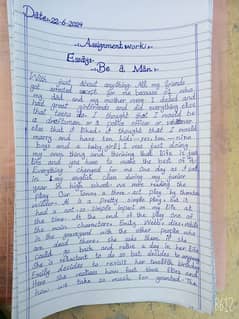 Date:-22-6-2024
Assignment work:-
Essay:-
Be a Man:-
With just about anything. All my friends
got married except for me because of who
my dad and my mother were. I dated and
had great girlfriends and did everything else
that teens do. I thought that I would be
a
else that I liked. I thought that I would
marry and have ten kids - yes ten - nine
boys and a baby girl. I was just doing
my own thing and thinking that life is just
life and you have to make the best of it.
Everything changed for me one day as I sat
in my english class during my junior
year in high school. we were reading the
play Our Town, a three - act play by thornton
wilder. It is a pretty simple play, but it
had a not so simple impact on my life at
the time. At the end of the play one of
the main characters, Emily Webb, dies
in the graveyard with the other people who
are dead there. she asks them if she
could go back and relive a day in her life.
she is reluctant to do so but decides to
Emily decides to revisit her twelfth
Here she notices how fast time flies and
how we take so much for granted. The